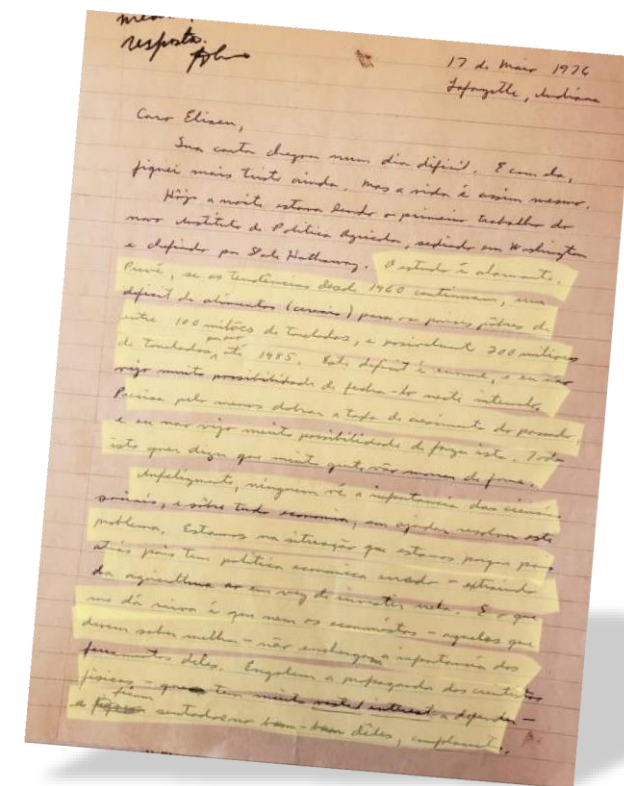 resposta.
17 de Maio 1976
Lafayette, Indiana
Caro Eliseu,
Sua carta chegou num dia difícil. E com ela,
fiquei mais triste ainda. Mas a vida é assim mesmo.
Hoje a noite estava lendo o primeiro trabalho do
novo Instituto de Política Agrícola, sediado em Washington
e chefiado por Dale Hathaway. O estudo é alarmante.
Prevê, se as tendências desde 1960 continuam, um
deficit de alimentos (cereais) para os países pobres de
entre 100 milões de toneladas, e possivelmente 200 milões
de toneladas por ano, até 1985. Este deficit é enorme, e eu não
vejo muita possibilidade de fechá-lo neste intervalo.
Precisa pelo menos dobrar a taxa de crescimento do passado,
e eu não vejo muita possibilidade de fazer isto. Tudo
isto quer dizer que muita gente vão morrer de fome.
Infelizmente, ninguem vê a importancia das ciencias
sociais, e sôbre tudo economia, em ajudar resolver este
problema. Estamos na situação que estamos porque país
atrás país tem política econômica errado - extraindo
da agricultura ao em vez de investir nela. E o que
me dá raiva é que nem os economistas - aqueles que
devem saber melhor - não enxergam a importancia dos
ferramentos deles. Engolem a propaganda dos cientistas
físicos - que tem muito vested interest a defender -
e ficam sentados no bem-bom dêles, complacente.